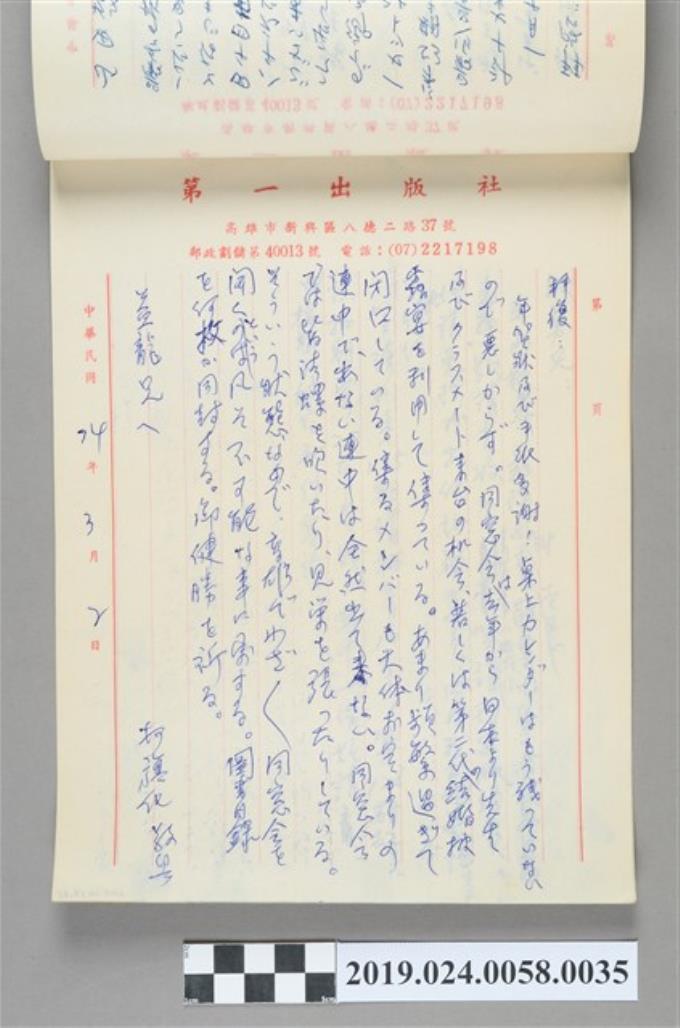 第一出版社
高雄市新興區八德二路37號
郵政劃儲第40013號 電話:(07)2217198
第 頁
拝復:
年賀状及び手紙多謝!卓上カレンダーはもう残っていない
ので悪しからず。同窓会は去年から日本より先生
及びクラスメート来台の机会、若しくは第二代の結婚披
露宴を利用して集っている。あまり頻繁過ぎて
閉口している。集るメンバーも大体お定まりの
連中で、出ない連中は全然出て来ない。同窓会
では皆法螺を吹いたり、見栄を張ったりしている。
そういう状態なので、高雄でわざ〱同窓会を
開くのは凡そ不可能な事に属する。図書目録
を何枚か同封する。御健勝を祈る。
益龍兄へ
柯旗化 敬具
中華民國74年3月2日
2019.024.0058.0035